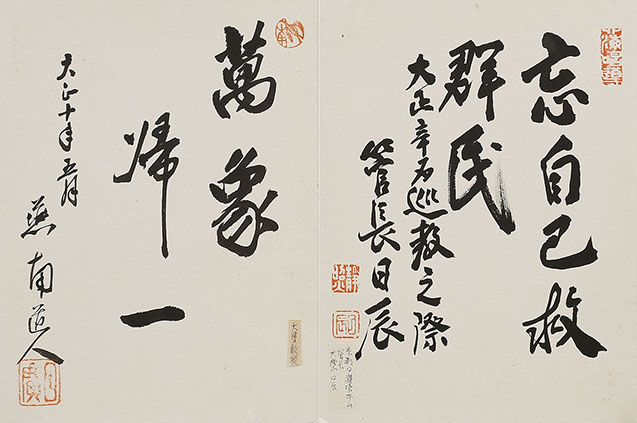 忘自己救
群民
大正辛酉巡教之際
管長日辰
萬象
帰一
大正十年五月
燕南道人